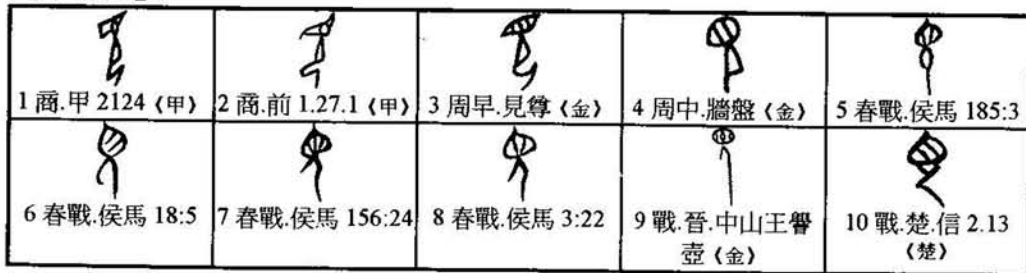 1 商.甲 2124〈甲〉
2 商.前 1.27.1〈甲〉
3 周早.見尊〈金〉
4 周中.牆盤〈金〉
5 春戰.侯馬 185:3
6 春戰.侯馬 18:5
7 春戰.侯馬 156:24
8 春戰.侯馬 3:22
9 戰.晉.中山王譽
壺〈金〉
10 戰.楚.信 2.13
〈楚〉